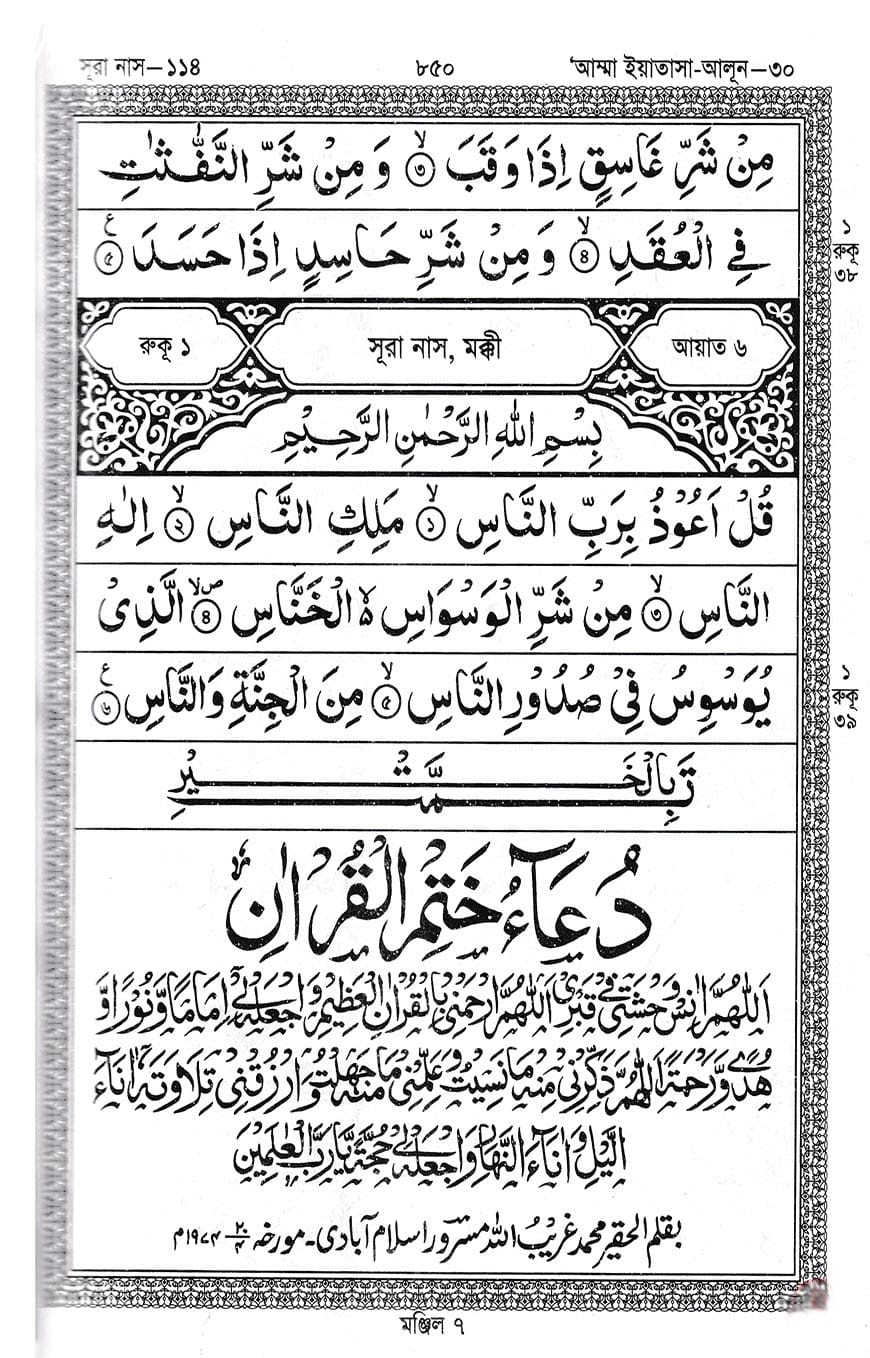 সূরা নাস—১১৪ ৮৫০ ‘আম্মা ইয়াতাসা-আলূন—৩০
مِنْ شَرِّ غَاسِقٍ اِذَا وَقَبَ ۙ﴿৩﴾ وَ مِنْ شَرِّ النَّفّٰثٰتِ
فِي الْعُقَدِ ۙ﴿৪﴾ وَ مِنْ شَرِّ حَاسِدٍ اِذَا حَسَدَ ﴿৫﴾ ع
১
রুকূ
৩৮
আয়াত ৬ সূরা নাস, মক্কী রুকূ ১
بِسْمِ اللّٰهِ الرَّحْمٰنِ الرَّحِيْمِ
قُلْ اَعُوْذُ بِرَبِّ النَّاسِ ۙ﴿১﴾ مَلِكِ النَّاسِ ۙ﴿২﴾ اِلٰهِ
النَّاسِ ۙ﴿৩﴾ مِنْ شَرِّ الْوَسْوَاسِ ۵ۙ الْخَنَّاسِ ۙص﴿৪﴾ الَّذِىْ
يُوَسْوِسُ فِىْ صُدُوْرِ النَّاسِ ۙ﴿৫﴾ مِنَ الْجِنَّةِ وَالنَّاسِ ﴿৬﴾ ع
১
রুকূ
৩৯
تَمَّتْ بِالْخَيْرِ
دُعَآءُ خَتْمِ الْقُرْاٰنِ
اَللّٰهُمَّ اٰنِسْ وَحْشَتِىْ فِىْ قَبْرِىْ اَللّٰهُمَّ ارْحَمْنِىْ بِالْقُرْاٰنِ الْعَظِيْمِ وَاجْعَلْهُ لِىْ اِمَامًا وَّنُوْرًا وَّ
هُدًى وَّرَحْمَةً اَللّٰهُمَّ ذَكِّرْنِىْ مِنْهُ مَا نَسِيْتُ وَعَلِّمْنِىْ مِنْهُ مَا جَهِلْتُ وَارْزُقْنِىْ تِلَاوَتَهٗ اٰنَآءَ
الَّيْلِ وَاٰنَآءَ النَّهَارِ وَاجْعَلْهُ لِىْ حُجَّةً يَّا رَبَّ الْعٰلَمِيْنَ
بقلم الحقیر محمد غریبُ اللہ مسرور اسلام آبادی۔ مورخہ ۲۰/۴ ۱۹۷۴م
মঞ্জিল ৭